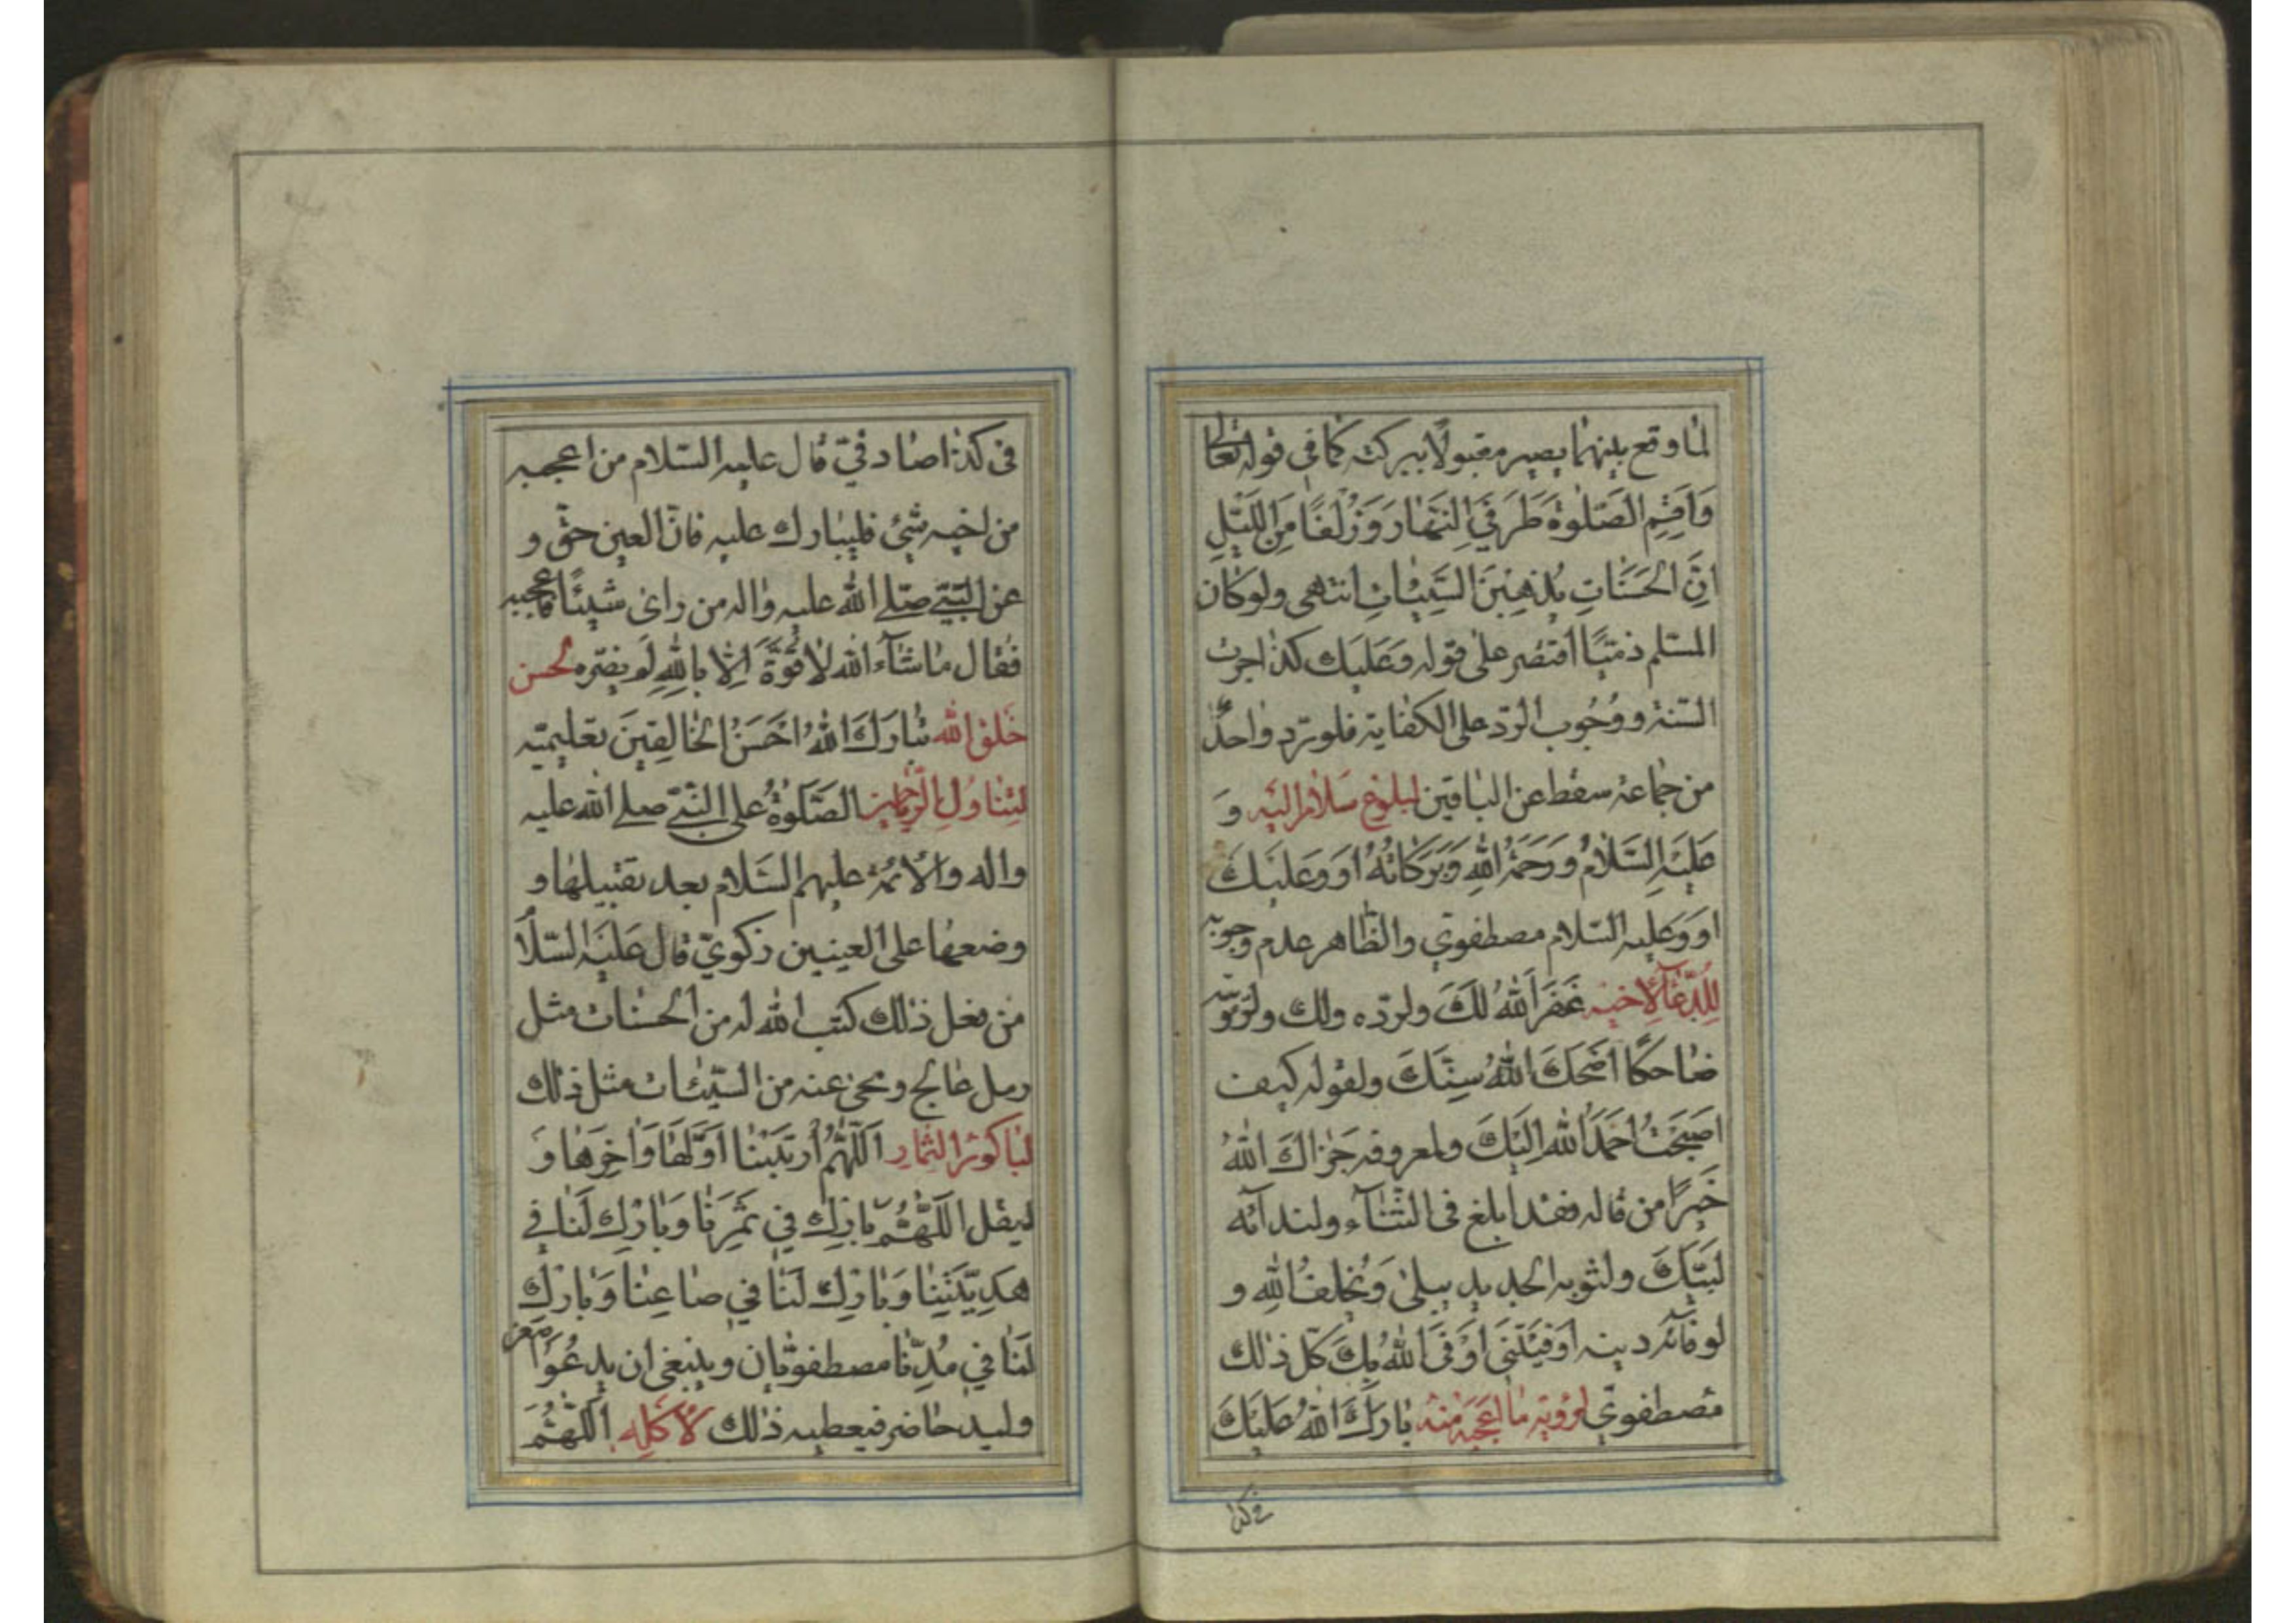 لما وقع بينهما يصير مقبولا ببركته كما في قوله تعالى
وَاَقِمِ الصَّلوٰةَ طَرَفَيِ النَّهارِ وَزُلَفًا مِنَ اللَّيْلِ
اِنَّ الْحَسَناتِ يُذْهِبْنَ السَّيِّئاتِ انتهى ولو كان
المسلم ذمّيًا اقتصر على قوله وَعَلَيك كذا جرت
السّنة ووُجُوب الردّ على الكفاية فلو ردّ واحدٌ
من جماعة سقط عن الباقين لبلوغ سلام اليه وَ
عَلَيْهِ السَّلامُ وَرَحْمَةُ اللهِ وَبَرَكاتُهُ اَو وَعَلَيْكَ
او وَعليه السّلام مصطفوي والظّاهر عدم وجوبه
لِلدُّعآء لاخيه غَفَرَ اللهُ لَكَ ولردّه ولك ولرؤيته
ضاحكًا اَضْحَكَ اللهُ سِنَّكَ ولقوله كيف
اصبحتَ اَحْمَدُ اللهَ اِلَيْكَ ولمعروفه جَزاكَ اللهُ
خَيْرًا من قاله فقد ابلغ في الثّناء ولندائه
لَبَّيْكَ ولثوبه الجديد يبلى وَيُخلفُ اللهِ و
لوفائه دينه اَوْفَيْتَنى اَوْفَى اللهُ بِكَ كلّ ذلك
مصطفويّ لرؤية ما اعجبه منه بارَكَ اللهُ عَلَيْكَ
في كذا
في كذا صادقيّ قال عليه السّلام من اعجبه
من اخيه شئ فليبارك عليه فانّ العين حقّ و
عن النبيّ صلّى الله عليه واله من راى شيئًا فاعجبه
فقال ما شآء الله لا قُوَّةَ اِلّا بِاللهِ لم يضرّه لحسن
خَلق الله تَبارَكَ اللهُ اَحْسَنُ الْخالِقينَ تعليميّه
لتناول الرّياحين الصَّلوةُ على النّبيّ صلى الله عليه
واله والائمة عليهم السّلام بعد تقبيلها و
وضعها على العينين زكويّ قال عَلَيْهِ السّلا
من فعل ذلك كتب الله له من الحسنات مثل
رمل عالج ومحى عنه من السّيّئات مثل ذلك
لباكورة الثمار اَللّهُمَّ اَرَيْتَنا اَوَّلَها وَاخِرَها وَ
ليقل اللّهُمَّ بارِك في ثَمَرِنا وَبارِك لَنا في
مَدِيْنَتِنا وَبارِك لَنا في صاعِنا وَبارِك
لَنا في مُدِّنا مصطفويّان وينبغى ان يدعُوَ اصغر
وليد حاضر فيعطيه ذلك لاكله اَللّهُمَّ